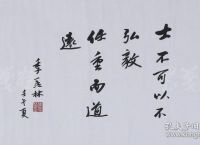 士不可以不
弘毅
任重而道
遠
季羡林
壬午夏